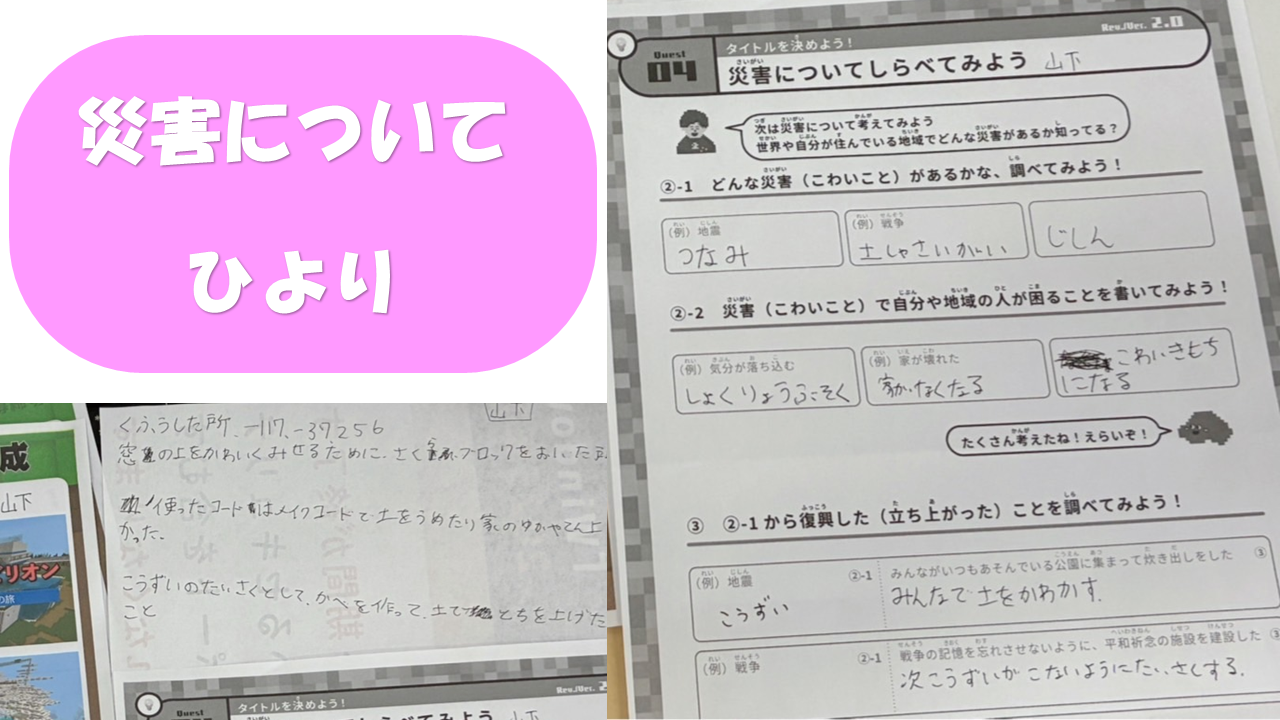 災害について
ひより
成
山下
リオン
の旅
くふうした所、-117、-37256
窓の上をかわいくみせるために、さくブロックをおいた所
使ったコードはメイクコードで土をうめたり家のゆかやてん上
かった。
こうずいのたいさくとして、かべを作って、土でとちを上げた
こと
山下
Quest
タイトルを決めよう!
Rev./Ver. 2
山下
Quest
04
タイトルを決めよう!
Rev./Ver. 2.0
災害についてしらべてみよう 山下
次は災害について考えてみよう
世界や自分が住んでいる地域でどんな災害があるか知ってる?
②-1 どんな災害(こわいこと)があるかな、調べてみよう!
(例)地震
つなみ
(例)戦争
土しゃさいがい
じしん
②-2 災害(こわいこと)で自分や地域の人が困ることを書いてみよう!
(例)気分が落ち込む
しょくりょうぶそく
(例)家が壊れた
家がなくなる
こわいきもち
になる
たくさん考えたね!えらいぞ!
③ ②-1から復興した(立ち上がった)ことを調べてみよう!
(例)地震
②-1
こうずい
みんながいつもあそんでいる公園に集まって炊き出しをした
③
みんなで土をかわかす.
(例)戦争
②-1
戦争の記憶を忘れさせないように、平和祈念の施設を建設した
次こうずいがこないようにたいさくする.